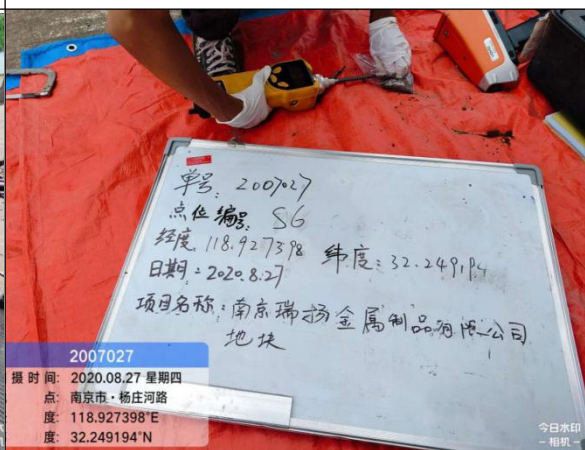 单号: 2007027
点位编号: S6
经度: 118.927398 纬度: 32.249194
日期: 2020.8.27
项目名称: 南京瑞扬金属制品有限公司
地块
2007027
摄时间: 2020.08.27 星期四
点: 南京市·杨庄河路
度: 118.927398°E
度: 32.249194°N
今日水印
-相机-